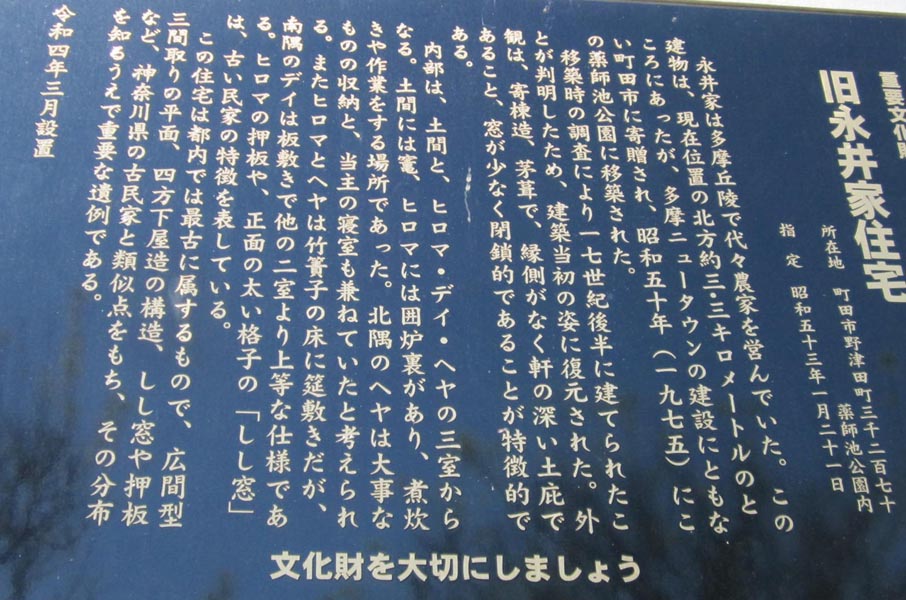 重要文化財
旧永井家住宅
所在地　町田市野津田町三千二百七十
薬師池公園内
指　定　昭和五十三年一月二十一日
永井家は多摩丘陵で代々農家を営んでいた。この
建物は、現在位置の北方約三・三キロメートルのと
ころにあったが、多摩ニュータウンの建設にともな
い町田市に寄贈され、昭和五十年（一九七五）にこ
の薬師池公園に移築された。
移築時の調査により一七世紀後半に建てられたこ
とが判明したため、建築当初の姿に復元された。外
観は、寄棟造、茅葺で、縁側がなく軒の深い土庇で
あること、窓が少なく閉鎖的であることが特徴的で
ある。
内部は、土間と、ヒロマ・デイ・ヘヤの三室から
なる。土間には竈、ヒロマには囲炉裏があり、煮炊
きや作業をする場所であった。北隅のヘヤは大事な
ものの収納と、当主の寝室も兼ねていたと考えられ
る。またヒロマとヘヤは竹簀子の床に筵敷きだが、
南隅のデイは板敷きで他の二室より上等な仕様であ
る。ヒロマの押板や、正面の太い格子の「しし窓」
は、古い民家の特徴を表している。
この住宅は都内では最古に属するもので、広間型
三間取りの平面、四方下屋造の構造、しし窓や押板
など、神奈川県の古民家と類似点をもち、その分布
を知るうえで重要な遺例である。
令和四年三月設置
文化財を大切にしましょう